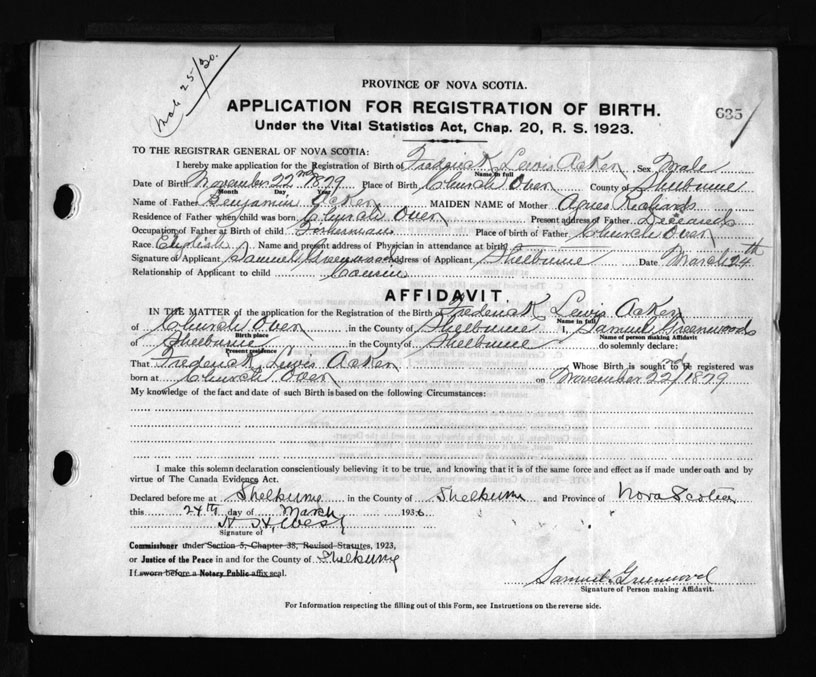 25/30.
635
PROVINCE OF NOVA SCOTIA.
APPLICATION FOR REGISTRATION OF BIRTH.
Under the Vital Statistics Act, Chap. 20, R. S. 1923.
TO THE REGISTRAR GENERAL OF NOVA SCOTIA:
I hereby make application for the Registration of Birth of Frederick Lewis Acker Sex Male
Name in full
Date of Birth November 22nd 1879 Place of Birth Church Over County of Shelburne
Month Day Year
Name of Father Benjamin Acker MAIDEN NAME of Mother Agnes Richards
Residence of Father when child was born Church Over Present address of Father Deceased
Occupation of Father at Birth of child Fisherman Place of birth of Father Church Over
Race English Name and present address of Physician in attendance at birth
Signature of Applicant Samuel Greenwood Address of Applicant Shelburne Date March 24th
Relationship of Applicant to child Cousin
AFFIDAVIT.
IN THE MATTER of the application for the Registration of the Birth of Frederick Lewis Acker
Name in full
of Church Over in the County of Shelburne I, Samuel Greenwood
Birth place Name of person making Affidavit
of Shelburne in the County of Shelburne do solemnly declare:
Present residence
That Frederick Lewis Acker Whose Birth is sought to be registered was
born at Church Over on November 22nd 1879
My knowledge of the fact and date of such Birth is based on the following Circumstances:
I make this solemn declaration conscientiously believing it to be true, and knowing that it is of the same force and effect as if made under oath and by
virtue of The Canada Evidence Act.
Declared before me at Shelburne in the County of Shelburne and Province of Nova Scotia
this 24th day of March 1936.
Signature of
Commissioner under Section 5, Chapter 38, Revised Statutes, 1923,
or Justice of the Peace in and for the County of Shelburne
If sworn before a Notary Public affix seal.
Samuel Greenwood
Signature of Person making Affidavit.
For Information respecting the filling out of this Form, see Instructions on the reverse side.